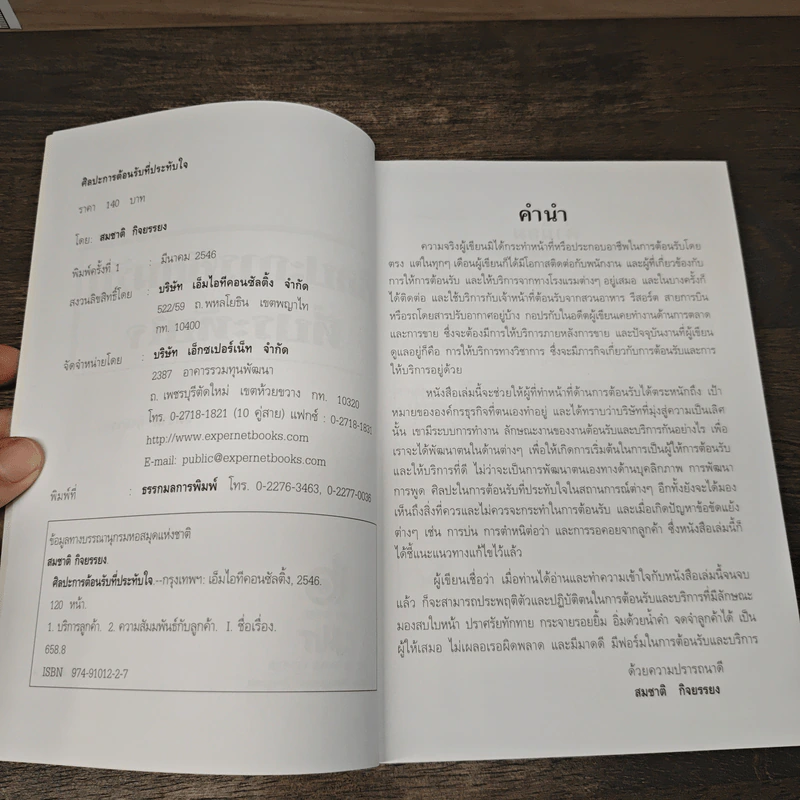 ศิลปะการต้อนรับที่ประทับใจ
ราคา 140 บาท
โดย: สมชาติ กิจยรรยง
พิมพ์ครั้งที่ 1 : มีนาคม 2546
สงวนลิขสิทธิ์โดย : บริษัท เอ็มไอทีคอนซัลติ้ง จำกัด
522/59 ถ.พหลโยธิน เขตพญาไท
กท. 10400
จัดจำหน่ายโดย : บริษัท เอ็กซเปอร์เน็ท จำกัด
2387 อาคารรวมทุนพัฒนา
ถ. เพชรบุรีตัดใหม่ เขตห้วยขวาง กท. 10320
โทร. 0-2718-1821 (10 คู่สาย) แฟกซ์ : 0-2718-1831
http://www.expernetbooks.com
E-mail: public@expernetbooks.com
พิมพ์ที่ : ธรรกมลการพิมพ์ โทร. 0-2276-3463, 0-2277-0036
ข้อมูลทางบรรณานุกรมหอสมุดแห่งชาติ
สมชาติ กิจยรรยง.
ศิลปะการต้อนรับที่ประทับใจ.--กรุงเทพฯ: เอ็มไอทีคอนซัลติ้ง, 2546.
120 หน้า.
1. บริการลูกค้า. 2. ความสัมพันธ์กับลูกค้า. I. ชื่อเรื่อง.
658.8
ISBN 974-91012-2-7
คำนำ
ความจริงผู้เขียนมิได้กระทำหน้าที่หรือประกอบอาชีพในการต้อนรับโดย
ตรง แต่ในทุกๆ เดือนผู้เขียนก็ได้มีโอกาสติดต่อกับพนักงาน และผู้ที่เกี่ยวข้องกับ
การให้การต้อนรับ และให้บริการจากทางโรงแรมต่างๆ อยู่เสมอ และในบางครั้งก็
ได้ติดต่อ และใช้บริการกับเจ้าหน้าที่ต้อนรับจากสวนอาหาร รีสอร์ต สายการบิน
หรือรถโดยสารปรับอากาศอยู่บ้าง กอปรกับในอดีตผู้เขียนเคยทำงานด้านการตลาด
และการขาย ซึ่งจะต้องมีการให้บริการภายหลังการขาย และปัจจุบันงานที่ผู้เขียน
ดูแลอยู่ก็คือ การให้บริการทางวิชาการ ซึ่งจะมีภารกิจเกี่ยวกับการต้อนรับและการ
ให้บริการอยู่ด้วย
หนังสือเล่มนี้จะช่วยให้ผู้ที่ทำหน้าที่ด้านการต้อนรับได้ตระหนักถึง เป้า
หมายขององค์กรธุรกิจที่ตนเองทำอยู่ และได้ทราบว่าบริษัทที่มุ่งสู่ความเป็นเลิศ
นั้น เขามีระบบการทำงาน ลักษณะงานของงานต้อนรับและบริการกันอย่างไร เพื่อ
เราจะได้พัฒนาตนในด้านต่างๆ เพื่อให้เกิดการเริ่มต้นในการเป็นผู้ให้การต้อนรับ
และให้บริการที่ดี ไม่ว่าจะเป็นการพัฒนาตนเองทางด้านบุคลิกภาพ การพัฒนา
การพูด ศิลปะในการต้อนรับที่ประทับใจในสถานการณ์ต่างๆ อีกทั้งยังจะได้มอง
เห็นถึงสิ่งที่ควรและไม่ควรจะกระทำในการต้อนรับ และเมื่อเกิดปัญหาข้อขัดแย้ง
ต่างๆ เช่น การบ่น การตำหนิต่อว่า และการรอคอยจากลูกค้า ซึ่งหนังสือเล่มนี้ก็
ได้ชี้แนะแนวทางแก้ไขไว้แล้ว
ผู้เขียนเชื่อว่า เมื่อท่านได้อ่านและทำความเข้าใจกับหนังสือเล่มนี้จนจบ
แล้ว ก็จะสามารถประพฤติตัวและปฏิบัติตนในการต้อนรับและบริการที่มีลักษณะ
มองสบใบหน้า ปราศรัยทักทาย กระจายรอยยิ้ม อิ่มด้วยน้ำคำ จดจำลูกค้าได้ เป็น
ผู้ให้เสมอ ไม่เผลอเรอผิดพลาด และมีมาดดี มีฟอร์มในการต้อนรับและบริการ
ด้วยความปรารถนาดี
สมชาติ กิจยรรยง